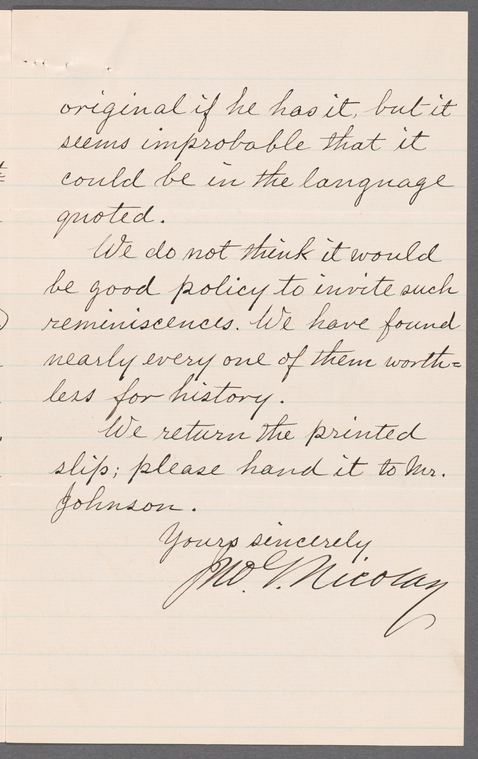 original if he has it, but it
seems improbable that it
could be in the language
quoted.
We do not think it would
be good policy to invite such
reminiscences. We have found
nearly every one of them worth=
less for history.
We return the printed
slip; please hand it to Mr.
Johnson.
Yours sincerely
Jno. G. Nicolay